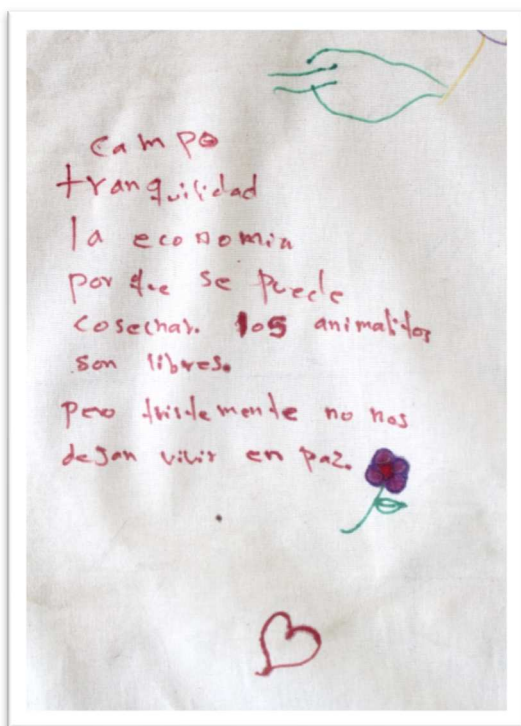 campo
tranquilidad
la economia
por que se puede
cosechar. los animalitos
son libres.
pero tristemente no nos
dejan vivir en paz.